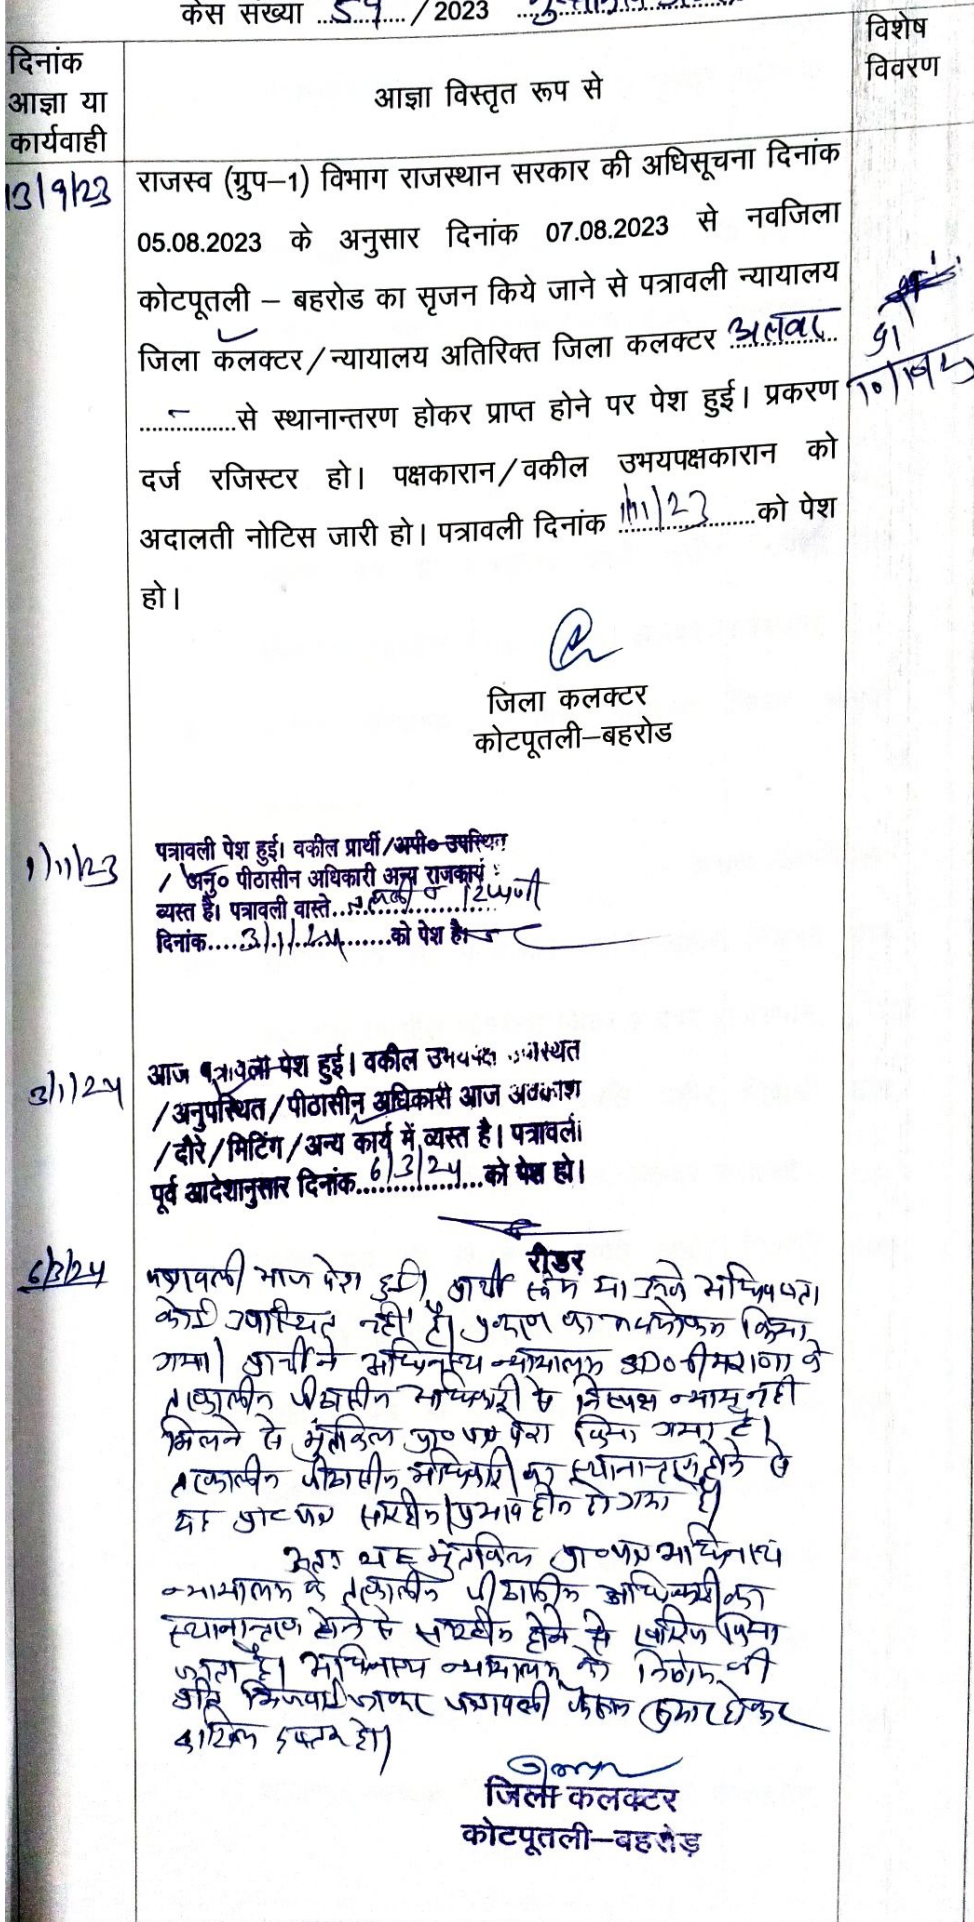 केस संख्या ........ / 2023
दिनांक
आज्ञा या
कार्यवाही
आज्ञा विस्तृत रूप से
विशेष
विवरण
13/9/23
राजस्व (ग्रुप–1) विभाग राजस्थान सरकार की अधिसूचना दिनांक
05.08.2023 के अनुसार दिनांक 07.08.2023 से नवजिला
कोटपूतली – बहरोड का सृजन किये जाने से पत्रावली न्यायालय
जिला कलक्टर/न्यायालय अतिरिक्त जिला कलक्टर अलवर
................से स्थानान्तरण होकर प्राप्त होने पर पेश हुई। प्रकरण
दर्ज रजिस्टर हो। पक्षकारान/वकील उभयपक्षकारान को
अदालती नोटिस जारी हो। पत्रावली दिनांक 1/11/23 को पेश
हो।
जिला कलक्टर
कोटपूतली–बहरोड
1/11/23
पत्रावली पेश हुई। वकील प्रार्थी/अपी० उपस्थित
/ अनु० पीठासीन अधिकारी अन्य राजकार्य
व्यस्त है। पत्रावली वास्ते..... टिप्पणी
दिनांक....3/1/24.....को पेश है।
3/1/24
आज पत्रावली पेश हुई। वकील उभयपक्ष उपस्थित
/अनुपस्थित/पीठासीन अधिकारी आज अवकाश
/दौरे/मिटिंग/अन्य कार्य में व्यस्त है। पत्रावली
पूर्व आदेशानुसार दिनांक....6/3/24....को पेश हो।
रीडर
6/3/24
पत्रावली आज पेश हुई। प्रार्थी स्वंय या उनके अधिवक्ता
कोई उपस्थित नहीं है। प्रकरण का अवलोकन किया
गया। प्रार्थी ने अधिनस्थ न्यायालय SDO नीमराणा के
तत्कालीन पीठासीन अधिकारी से निष्पक्ष न्याय नहीं
मिलने से मुंतकिल प्रा०पत्र पेश किया गया है।
तत्कालीन पीठासीन अधिकारी का स्थानान्तरण होने से
यह प्रा०पत्र सारहीन/प्रभावहीन हो गया है।
अतः यह मुंतकिल प्रा०पत्र अधिनस्थ
न्यायालय के तत्कालीन पीठासीन अधिकारी का
स्थानान्तरण होने से सारहीन होने से खारिज किया
जाता है। अधिनस्थ न्यायालय को निर्णय की
प्रति भिजवाई जाकर पत्रावली फैसल शुमार होकर
दाखिल दफ्तर हो।
जिला कलक्टर
कोटपूतली–बहरोड़